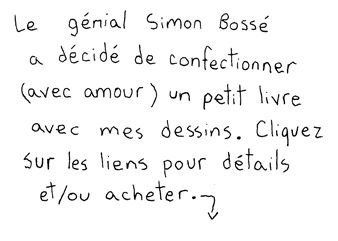 Le génial Simon Bossé
a décidé de confectionner
(avec amour) un petit livre
avec mes dessins. Cliquez
sur les liens pour détails
et/ou acheter.